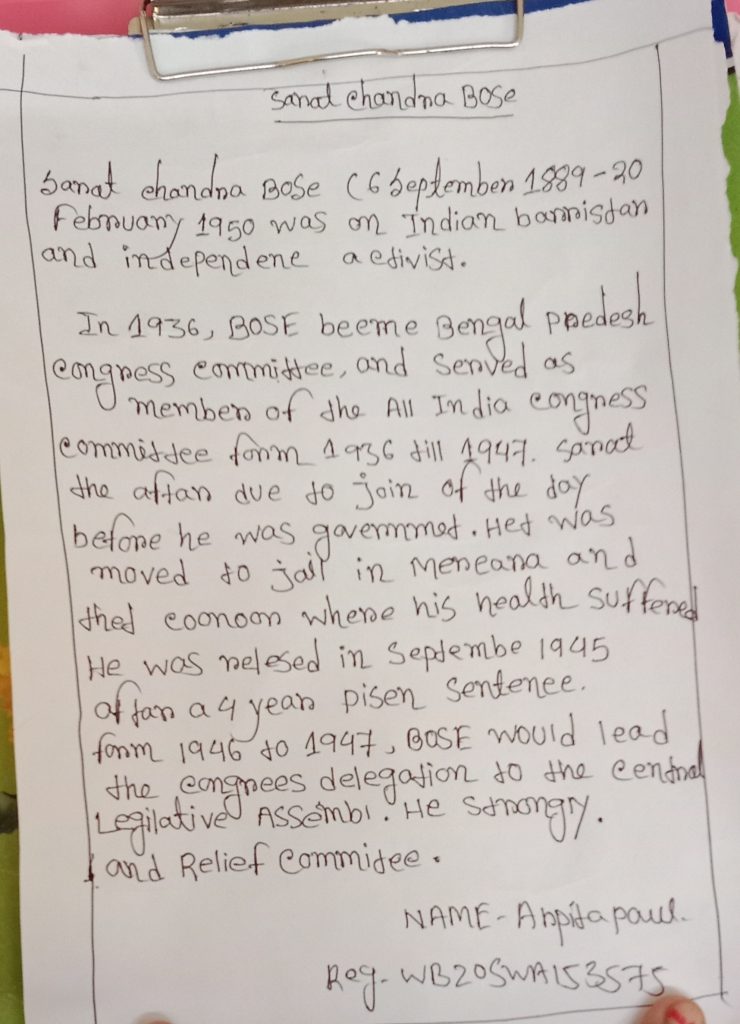 Sarat chandra BOSE
Sarat chandra BOSE (6 September 1889-20
February 1950 was on Indian barristar
and independene activist.
In 1936, BOSE beeme Bengal predesh
congress committee, and served as
member of the All India congress
committee form 1936 till 1947. Sarat
the aftar due to join of the day
before he was govermmet. Het was
moved to jail in Mereara and
thed coonoor where his health suffered
He was relesed in Septembe 1945
aftar a 4 year pisen sentence.
form 1946 to 1947, BOSE would lead
the congrees delegation to the central
Legilative ASSembl. He strongry.
and Relief Commitee.
NAME- Arpita paul.
Reg- WB20SWA153575